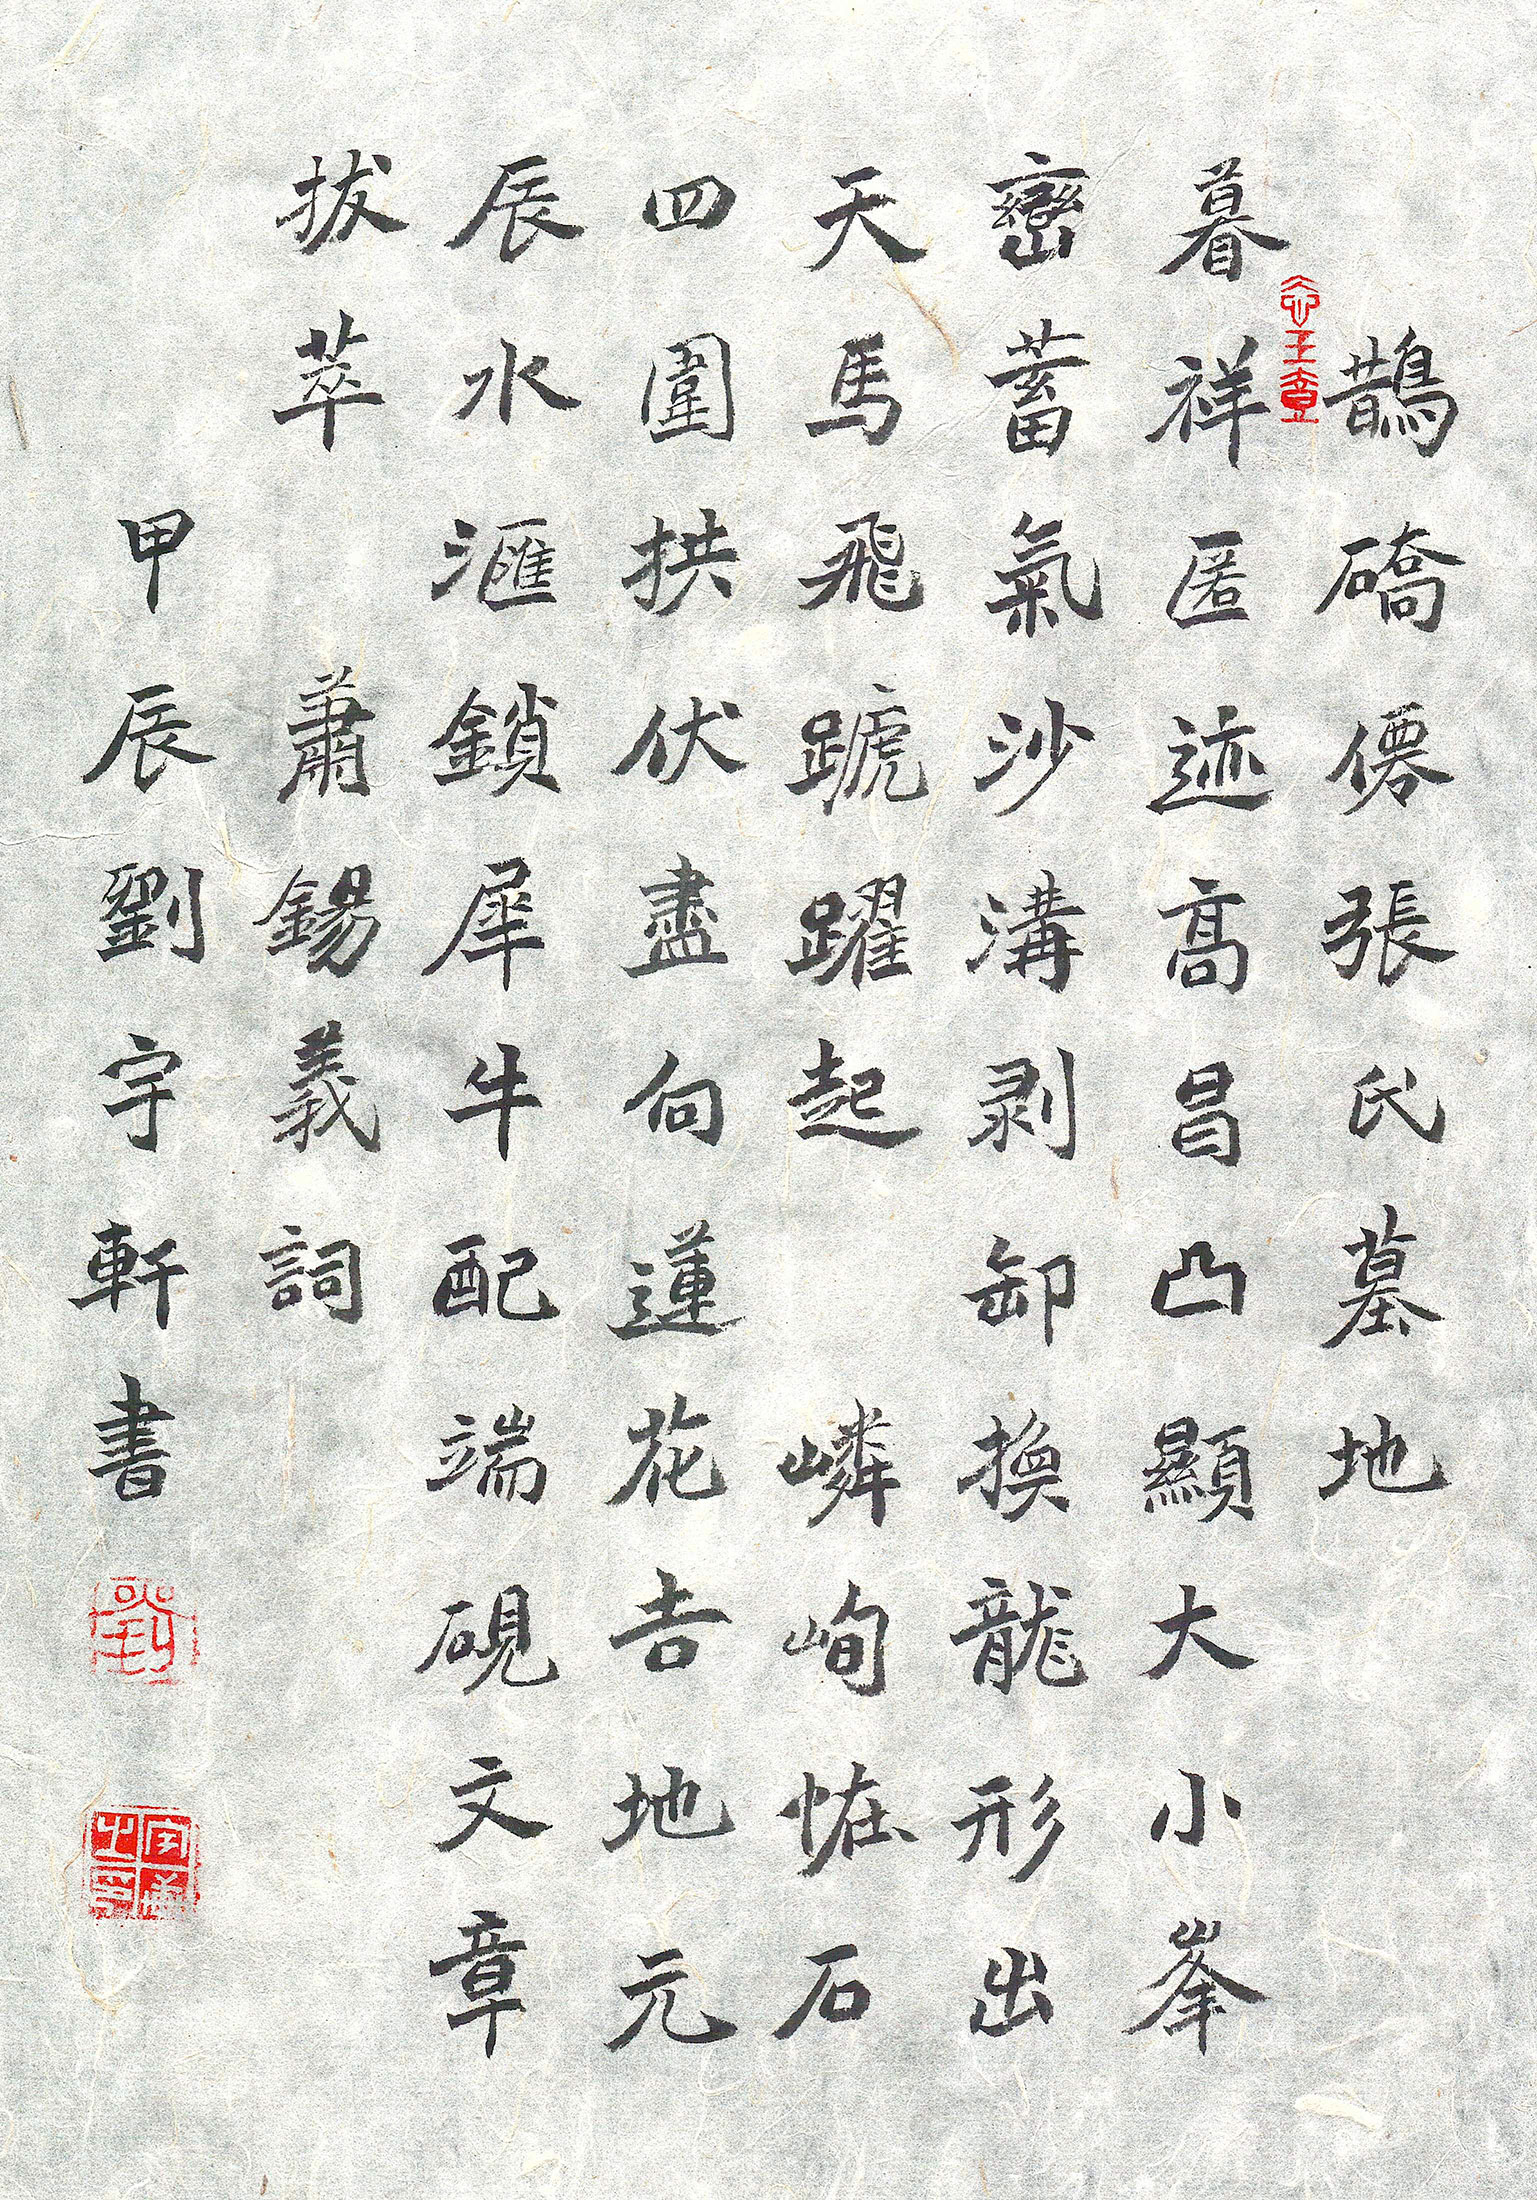 鵲礄僊張氏墓地
暮祥匿迹高昌凸顯大小峯
巒蓄氣沙溝剥卸換龍形出
天馬飛蹏躍起　嶙峋恠石
四圍拱伏盡向蓮花吉地元
辰水滙鎖犀牛配端硯文章
拔萃　蕭錫義詞
甲辰劉宇軒書